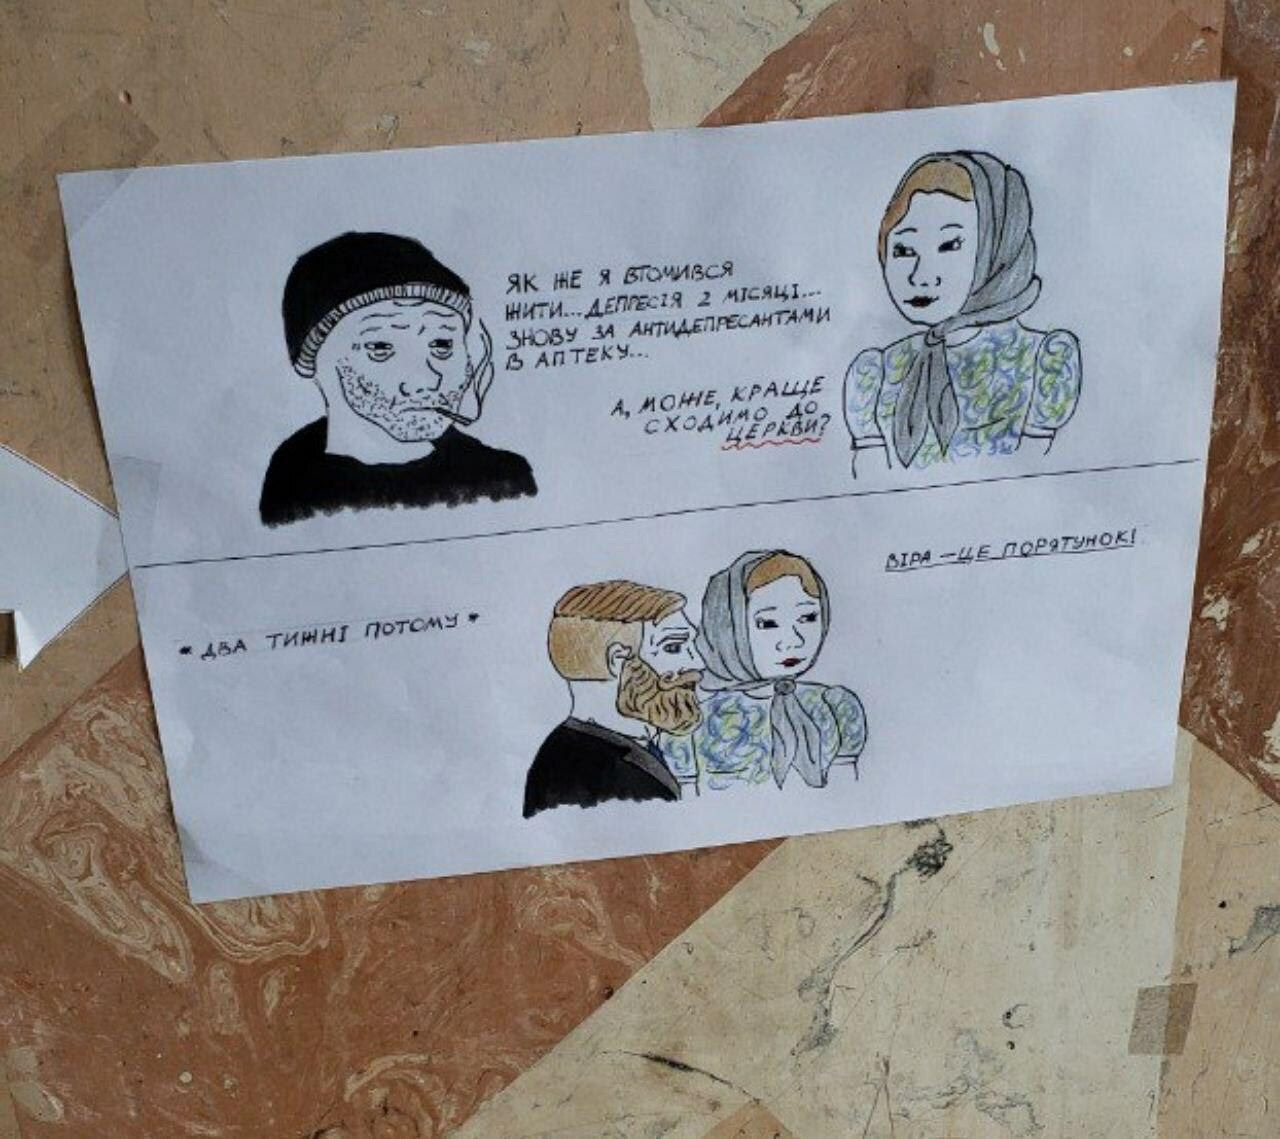 ЯК ЖЕ Я ВТОМИВСЯ
ЖИТИ... ДЕПРЕСІЯ 2 МІСЯЦІ...
ЗНОВУ ЗА АНТИДЕПРЕСАНТАМИ
В АПТЕКУ...
А, МОЖЕ, КРАЩЕ
СХОДИМО ДО
ЦЕРКВИ?
ВІРА – ЦЕ ПОРЯТУНОК!
* ДВА ТИЖНІ ПОТОМУ *